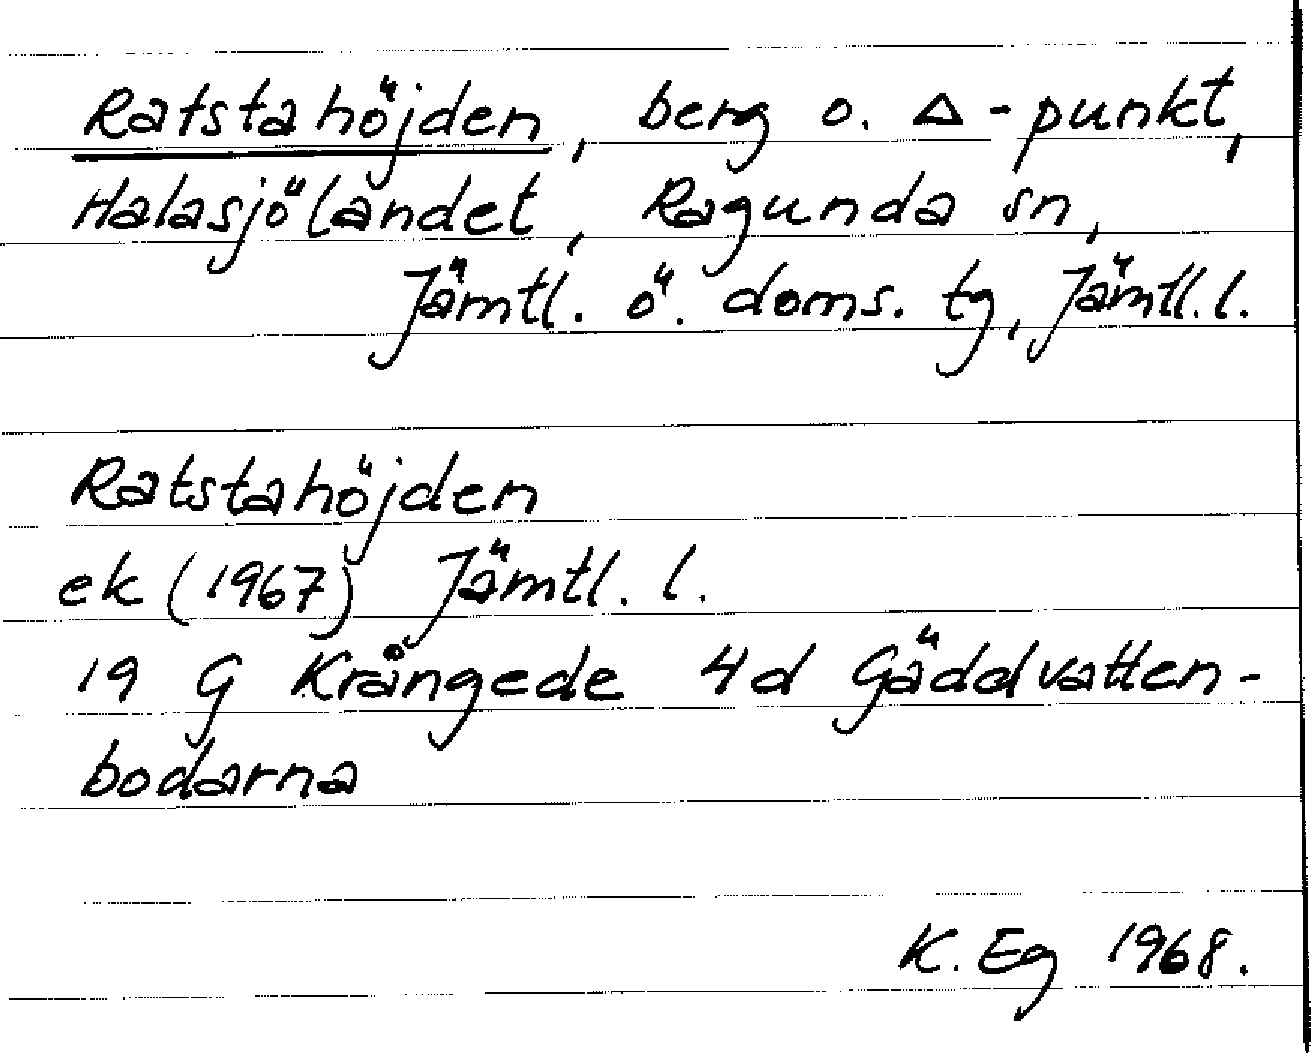 Ratstahöjden, berg o. Δ-punkt,
Halasjölandet, Ragunda sn,
Jämtl. ö. doms. tg, Jämtl. l.
Ratstahöjden
ek (1967) Jämtl. l.
19 G Krångede 4d Gäddvatten-
bodarna
K. Eg 1968.